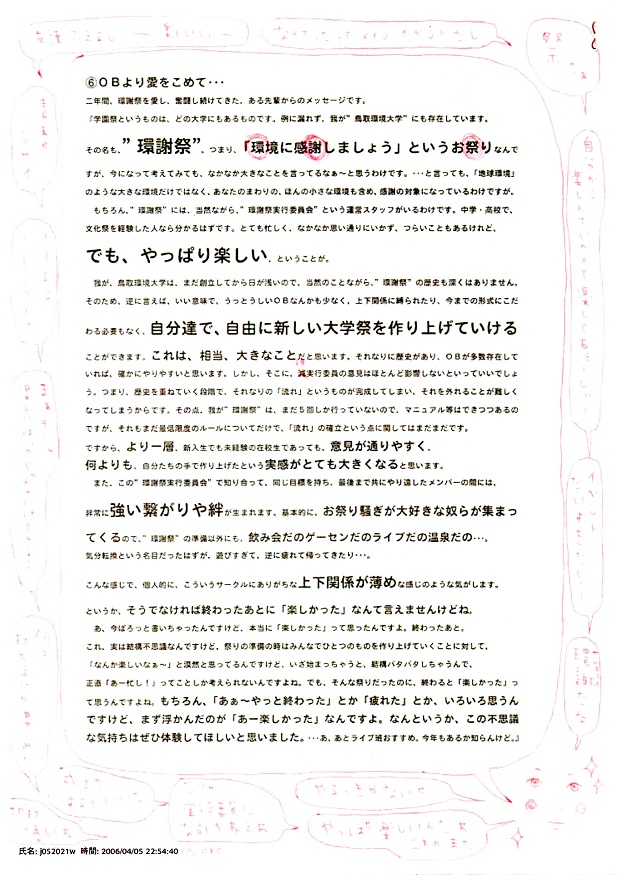 ⑥ＯＢより愛をこめて・・・
二年間、環謝祭を愛し、奮闘し続けてきた、ある先輩からのメッセージです。
『学園祭というものは、どの大学にもあるものです。例に漏れず、我が”鳥取環境大学”にも存在しています。
その名も、”環謝祭”、つまり、「環境に感謝しましょう」というお祭りなんで
すが、今になって考えてみても、なかなか大きなことを言ってるなぁ～と思うわけです。・・・と言っても、「地球環境」
のような大きな環境だけではなく、あなたのまわりの、ほんの小さな環境も含め、感謝の対象になっているわけですが。
もちろん、”環謝祭”には、当然ながら、”環謝祭実行委員会”という運営スタッフがいるわけです。中学・高校で、
文化祭を経験した人なら分かるはずです。とても忙しく、なかなか思い通りにいかず、つらいこともあるけれど、
でも、やっぱり楽しい、ということが。
我が、鳥取環境大学は、まだ創立してから日が浅いので、当然のことながら、”環謝祭”の歴史も深くはありません。
そのため、逆に言えば、いい意味で、うっとうしいＯＢなんかも少なく、上下関係に縛られたり、今までの形式にこだ
わる必要もなく、自分達で、自由に新しい大学祭を作り上げていける
ことができます。これは、相当、大きなことだと思います。それなりに歴史があり、ＯＢが多数存在して
いれば、確かにやりやすいと思います。しかし、そこに、実行委員の意見はほとんど影響しないといっていいでしょ
う。つまり、歴史を重ねていく段階で、それなりの「流れ」というものが完成してしまい、それを外れることが難しく
なってしまうからです。その点、我が”環謝祭”は、まだ５回しか行っていないので、マニュアル等はできつつあるの
ですが、それもまだ最低限度のルールについてだけで、「流れ」の確立という点に関してはまだまだです。
ですから、より一層、新入生でも未経験の在校生であっても、意見が通りやすく、
何よりも、自分たちの手で作り上げたという実感がとても大きくなると思います。
また、この”環謝祭実行委員会”で知り合って、同じ目標を持ち、最後まで共にやり遠したメンバーの間には、
非常に強い繋がりや絆が生まれます。基本的に、お祭り騒ぎが大好きな奴らが集まっ
てくるので、”環謝祭”の準備以外にも、飲み会だのゲーセンだのライブだの温泉だの・・・。
気分転換という名目だったはずが、遊びすぎて、逆に疲れて帰ってきたり・・・。
こんな感じで、個人的に、こういうサークルにありがちな上下関係が薄めな感じのような気がします。
というか、そうでなければ終わったあとに「楽しかった」なんて言えませんけどね。
あ、今ぽろっと書いちゃったんですけど、本当に「楽しかった」って思ったんですよ。終わったあと。
これ、実は結構不思議なんですけど、祭りの準備の時はみんなでひとつのものを作り上げていくことに対して、
「なんか楽しいなぁ～」と漠然と思ってるんですけど、いざ始まっちゃうと、結構バタバタしちゃうんで、
正直「あー忙し！」ってことしか考えられないんですよね。でも、そんな祭りだったのに、終わると「楽しかった」っ
て思うんですよね。もちろん、「あぁ～やっと終わった」とか「疲れた」とか、いろいろ思うん
ですけど、まず浮かんだのが「あー楽しかった」なんですよ。なんというか、この不思議
な気持ちはぜひ体験してほしいと思いました。・・・あ、あとライブ班おすすめ。今年もあるか知らんけど。』
氏名: j052021w 時間: 2006/04/05 22:54:40